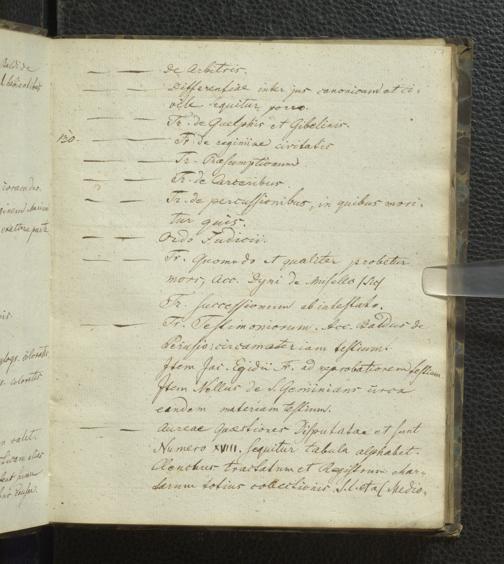 — — De Arbitris.
— — Differentiae inter jus canonicum et ci-
vile sequitur porro.
— — Tr. de Guelphis et Gibelinis.
130. — — Tr. de regimine civitatis
— — Tr. Praescriptionum
— — Tr. de Carceribus.
— — Tr. de percussionibus, in quibus mori-
tur quis.
— — Ordo Judicii.
— — Tr. Quomodo et qualiter probetur
mors, Acc. Dyni de Musello (Sic)
Tr. successionum ab intestato.
— Tr. Testimoniorum. Acc. Baldus de
Perusio: circa materiam testium:
Item Jac. Egidii Tr. ad reprobationem testium
Item Nellus de S. Geminiano circa
eandem materiam testium.
— Aureae Quaestiones Disputatae et sunt
Numero XVIII. Sequitur tabula alphabet.
Elenchus tractatum et Registrum char-
tarum totius collectionis. S. l. et a. (Medio-